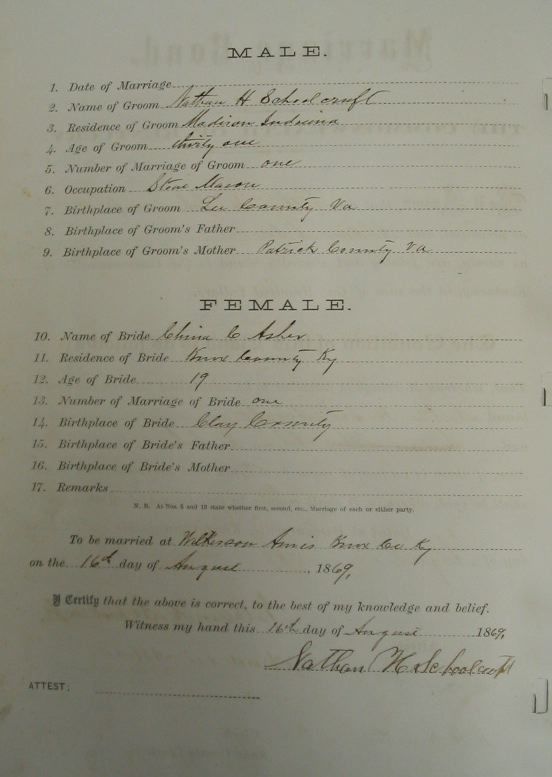 MALE.
1. Date of Marriage
2. Name of Groom Nathan H Schoolcraft
3. Residence of Groom Madison Indiana
4. Age of Groom thirty one
5. Number of Marriage of Groom one
6. Occupation Stone Mason
7. Birthplace of Groom Lee County Va
8. Birthplace of Groom's Father
9. Birthplace of Groom's Mother Patrick County Va
FEMALE.
10. Name of Bride C Asher
11. Residence of Bride Knox County Ky
12. Age of Bride 19
13. Number of Marriage of Bride one
14. Birthplace of Bride Clay County
15. Birthplace of Bride's Father
16. Birthplace of Bride's Mother
17. Remarks
N. B. At Nos. 5 and 13 state whether first, second, etc., Marriage of each or either party.
To be married at Wilkerson Knox Co Ky
on the 16th day of August, 1869,
I Certify that the above is correct, to the best of my knowledge and belief.
Witness my hand this 16th day of August 1869,
Nathan H Schoolcraft
ATTEST: